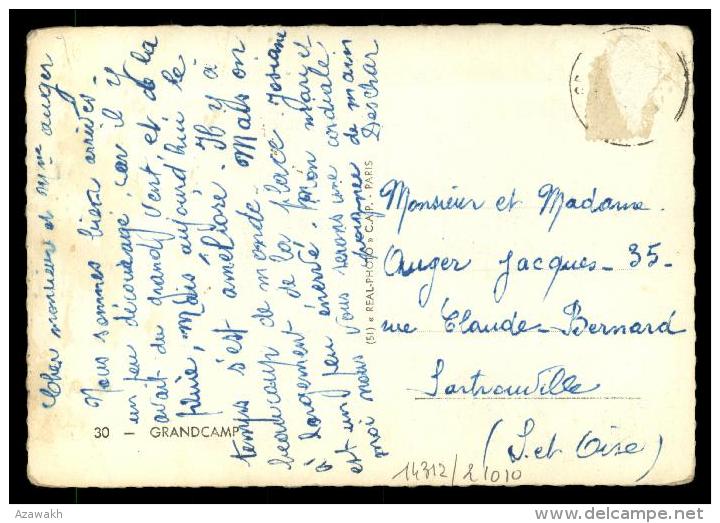 Cher monsieur et Mme Auger
Nous sommes bien arrivés -
un peu découragé car il y
avait du grand vent et de la
pluie, mais aujourd'hui le
temps s'est améliore - Il y à
beaucoup de monde - Mais on
à largement de la place - Josiane
est un peu énervé. Mon mary et
moi nous vous serrons une cordiale
poignée de main
Deschar
30 - GRANDCAMP
(51) « REAL-PHOTO » C.A.P. - PARIS
Monsieur et Madame.
Auger Jacques - 35 -
rue Claude - Bernard
Sartrouville
(S. et Oise)
14312/21010
Azawakh
www.delcampe.net